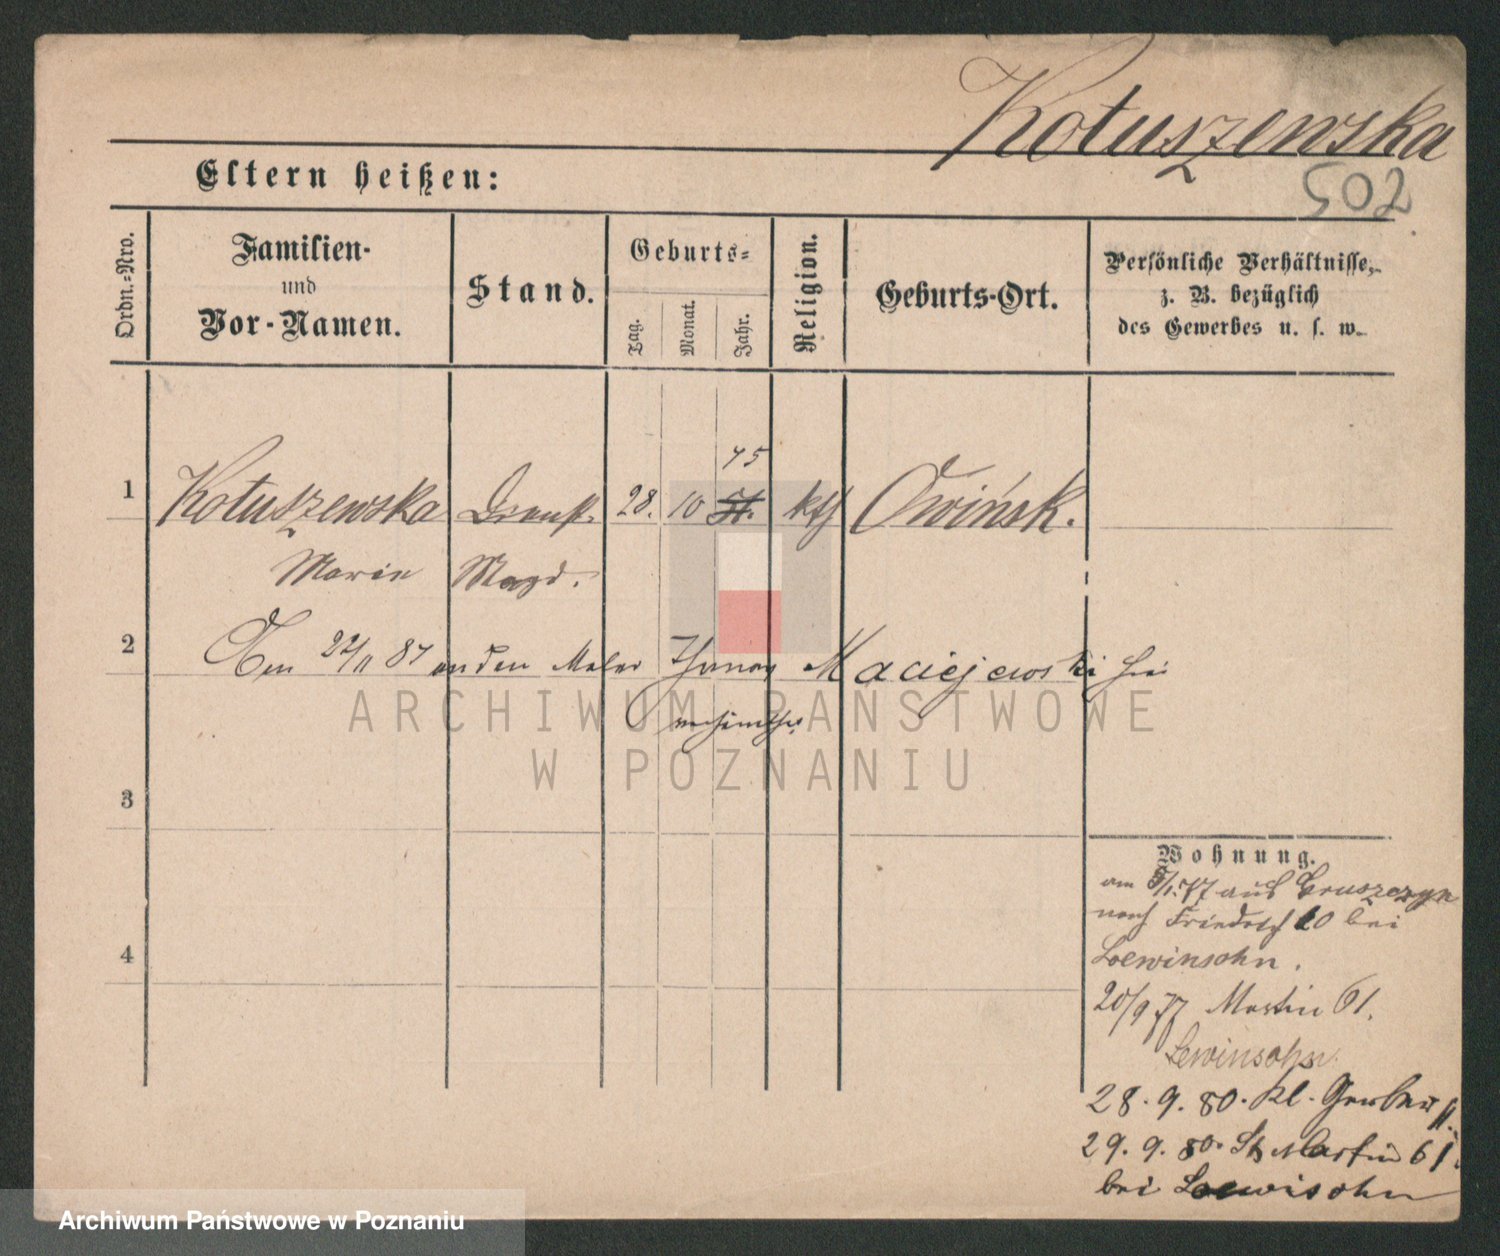 Kotuszewska
502
Eltern heißen:
Ordn.-Nro.
Familien-
und
Vor-Namen.
Stand.
Geburts-
Tag.
Monat.
Jahr.
Religion.
Geburts-Ort.
Persönliche Verhältnisse,
z. B. bezüglich
des Gewerbes u. s. w.
45
1 Kotuszewska 28. 10 kth Owińsk.
Marie Magd.
2 22/11 87 an den Maler Maciejewski hier
3
4
Wohnung.
am 5/1.77 aus Gruszczyn
nach Friedrich 10 bei
Loewinsohn.
20/9 77 Martin 61.
Lewinsohn.
28. 9. 80. Kl. Gerber 11.
29. 9. 80. St Martin 61.
bei Loewisohn
ARCHIWUM PAŃSTWOWE
W POZNANIU
Archiwum Państwowe w Poznaniu